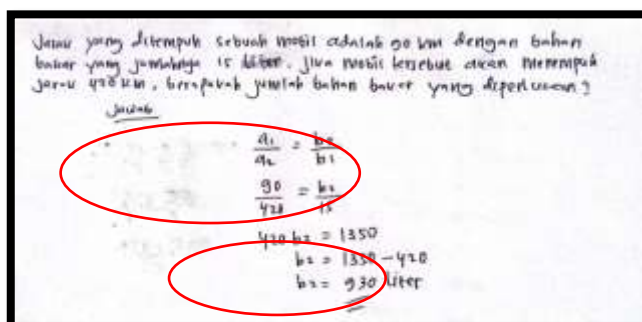 Jarak yang ditempuh sebuah mobil adalah 90 km dengan bahan
bakar yang jumlahnya 15 liter. Jika mobil tersebut akan menempuh
jarak 420 km, berapakah jumlah bahan bakar yang diperlukan?
Jawab
a1/a2 = b2/b1
90/420 = b2/15
420 b2 = 1350
b2 = 1350 - 420
b2 = 930 liter